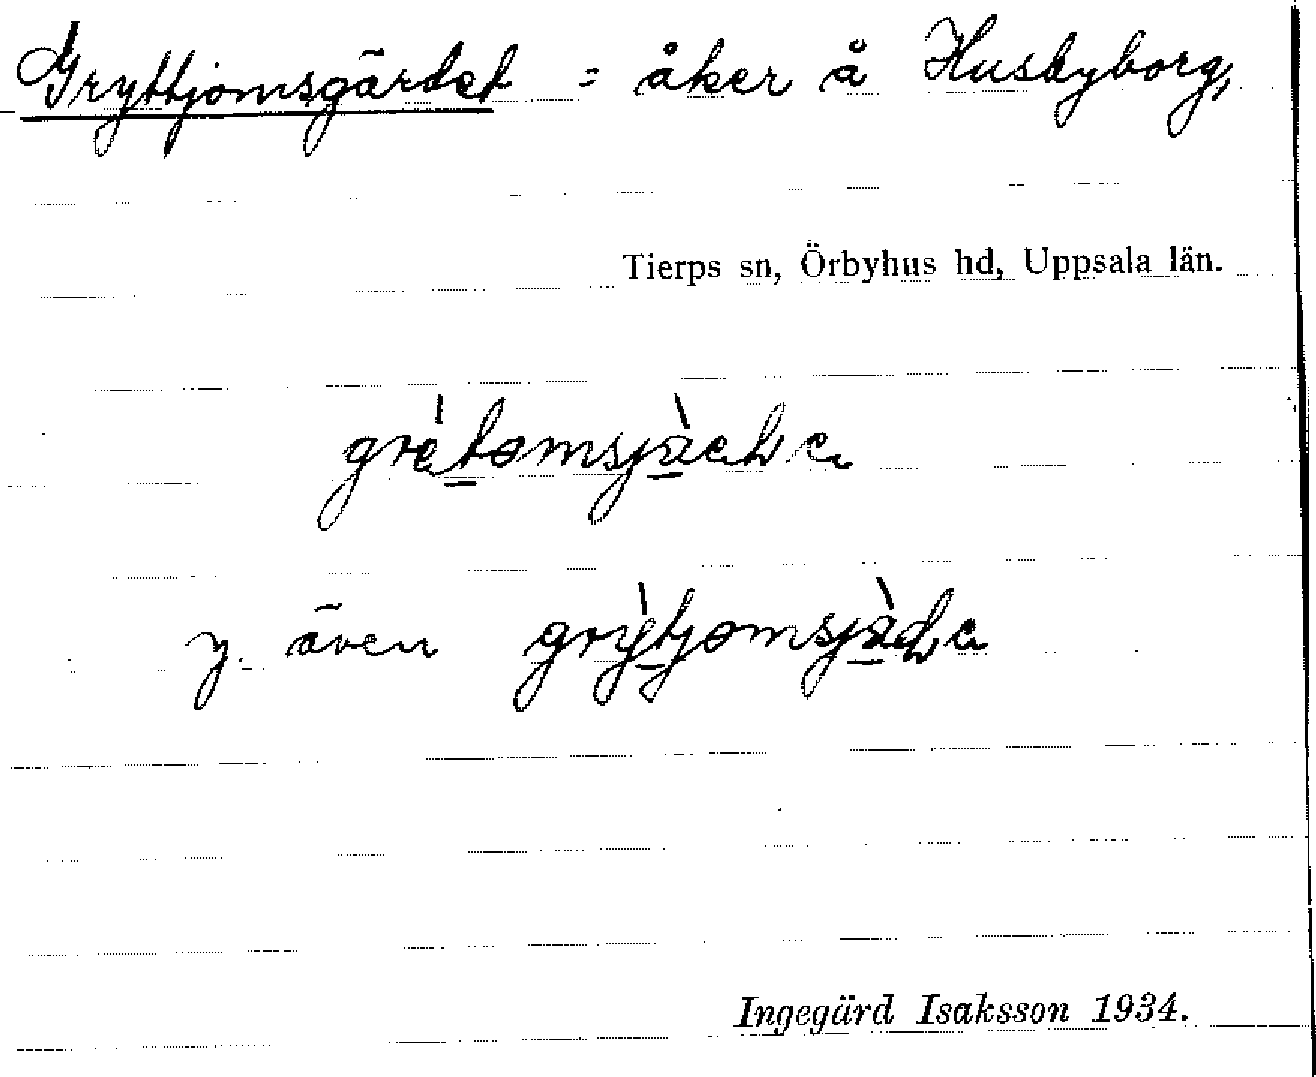 Gryttjomsgärdet = åker å Husbyborg,
Tierps sn, Örbyhus hd, Uppsala län.
y. även
Ingegärd Isaksson 1934.